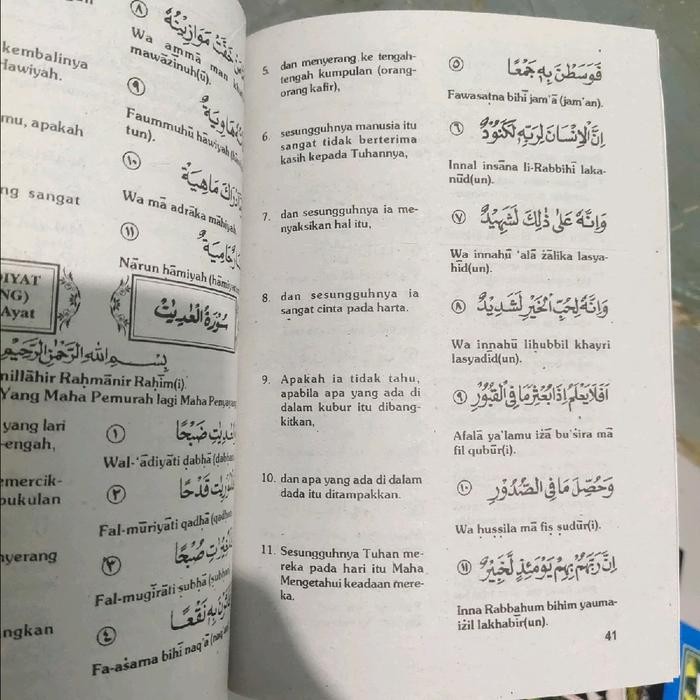 kembalinya
Hawiyah.
mu, apakah
ng sangat
DIYAT
NG)
Ayat
yang lari
-engah,
emercik-
pukulan
nyerang
ngkan
٨
Wa ammā man
mawāzīnuh(ū).
٩
Faummuhū hāwiyah
tun).
١٠
Wa mā adrāka māhiyah
١١
Nārun hāmiyah
سُورَةُ الْعٰدِيٰتِ
بِسْمِ اللّٰهِ الرَّحْمٰنِ الرَّحِيْمِ
millāhir Raḥmānir Raḥīm(i).
Yang Maha Pemurah lagi Maha Penyayang
١
Wal-‘ādiyāti ḍabḥā
٢
Fal-mūriyāti qadhā
٣
Fal-mugīrāti subhā
٤
Fa-aśarna bihī naq‘ā
5. dan menyerang ke tengah-
tengah kumpulan (orang-
orang kafir),
٥ فَوَسَطْنَ بِهٖ جَمْعًا
Fawasatna bihī jam‘ā (jam‘an).
6. sesungguhnya manusia itu
sangat tidak berterima
kasih kepada Tuhannya,
٦ اِنَّ الْاِنْسَانَ لِرَبِّهٖ لَكَنُوْدٌ
Innal insāna li-Rabbihī laka-
nūd(un).
7. dan sesungguhnya ia me-
nyaksikan hal itu,
٧ وَاِنَّهٗ عَلٰى ذٰلِكَ لَشَهِيْدٌ
Wa innahū ‘alā żālika lasya-
hīd(un).
8. dan sesungguhnya ia
sangat cinta pada harta.
٨ وَاِنَّهٗ لِحُبِّ الْخَيْرِ لَشَدِيْدٌ
Wa innahū liḥubbil khayri
lasyadid(un).
9. Apakah ia tidak tahu,
apabila apa yang ada di
dalam kubur itu dibang-
kitkan,
٩ اَفَلَا يَعْلَمُ اِذَا بُعْثِرَ مَا فِى الْقُبُوْرِ
Afalā ya‘lamu iżā bu‘śira mā
fil qubūr(i).
10. dan apa yang ada di dalam
dada itu ditampakkan.
١٠ وَحُصِّلَ مَا فِى الصُّدُوْرِ
Wa ḥuṣṣila mā fiṣ ṣudūr(i).
11. Sesungguhnya Tuhan me-
reka pada hari itu Maha
Mengetahui keadaan mere-
ka.
١١ اِنَّ رَبَّهُمْ بِهِمْ يَوْمَئِذٍ لَّخَبِيْرٌ
Inna Rabbahum bihim yauma-
iżil lakhabīr(un).
41